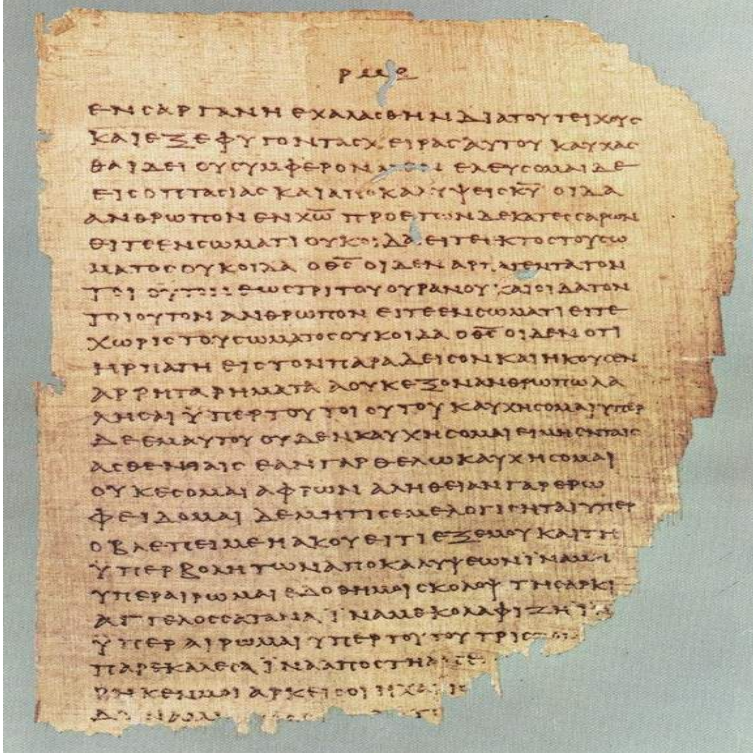 ρμϛ
ΕΝ ΣΑΡΓΑΝΗ ΕΧΑΛΑΣΘΗΝ ΔΙΑ ΤΟΥ ΤΕΙΧΟΥΣ
ΚΑΙ ΕΞΕΦΥΓΟΝ ΤΑΣ ΧΕΙΡΑΣ ΑΥΤΟΥ ΚΑΥΧΑΣ
ΘΑΙ ΔΕΙ ΟΥ ΣΥΜΦΕΡΟΝ ΜΕΝ ΕΛΕΥΣΟΜΑΙ ΔΕ
ΕΙΣ ΟΠΤΑΣΙΑΣ ΚΑΙ ΑΠΟΚΑΛΥΨΕΙΣ Κ̅Υ̅ ΟΙΔΑ
ΑΝΘΡΩΠΟΝ ΕΝ Χ̅Ω̅ ΠΡΟ ΕΤΩΝ ΔΕΚΑΤΕΣΣΑΡΩΝ
ΕΙΤΕ ΕΝ ΣΩΜΑΤΙ ΟΥΚ ΟΙΔΑ ΕΙΤΕ ΕΚΤΟΣ ΤΟΥ ΣΩ
ΜΑΤΟΣ ΟΥΚ ΟΙΔΑ Ο Θ̅Σ̅ ΟΙΔΕΝ ΑΡΠΑΓΕΝΤΑ ΤΟΝ
ΤΟΙΟΥΤΟΝ ΕΩΣ ΤΡΙΤΟΥ ΟΥΡΑΝΟΥ ΚΑΙ ΟΙΔΑ ΤΟΝ
ΤΟΙΟΥΤΟΝ ΑΝΘΡΩΠΟΝ ΕΙΤΕ ΕΝ ΣΩΜΑΤΙ ΕΙΤΕ
ΧΩΡΙΣ ΤΟΥ ΣΩΜΑΤΟΣ ΟΥΚ ΟΙΔΑ Ο Θ̅Σ̅ ΟΙΔΕΝ ΟΤΙ
ΗΡΠΑΓΗ ΕΙΣ ΤΟΝ ΠΑΡΑΔΕΙΣΟΝ ΚΑΙ ΗΚΟΥΣΕΝ
ΑΡΡΗΤΑ ΡΗΜΑΤΑ Α ΟΥΚ ΕΞΟΝ ΑΝΘΡΩΠΩ ΛΑ
ΛΗΣΑΙ ΫΠΕΡ ΤΟΥ ΤΟΙΟΥΤΟΥ ΚΑΥΧΗΣΟΜΑΙ ΥΠΕΡ
ΔΕ ΕΜΑΥΤΟΥ ΟΥΔΕΝ ΚΑΥΧΗΣΟΜΑΙ ΕΙ ΜΗ ΕΝ ΤΑΙΣ
ΑΣΘΕΝΙΑΙΣ ΕΑΝ ΓΑΡ ΘΕΛΩ ΚΑΥΧΗΣΟΜΑΙ
ΟΥΚ ΕΣΟΜΑΙ ΑΦΡΩΝ ΑΛΗΘΕΙΑΝ ΓΑΡ ΕΡΩ
ΦΕΙΔΟΜΑΙ ΔΕ ΜΗ ΤΙΣ ΕΜΕ ΛΟΓΙΣΗΤΑΙ ΥΠΕΡ
Ο ΒΛΕΠΕΙ ΜΕ Η ΑΚΟΥΕΙ ΤΙ ΕΞ ΕΜΟΥ ΚΑΙ ΤΗ
ΫΠΕΡΒΟΛΗ ΤΩΝ ΑΠΟΚΑΛΥΨΕΩΝ ΪΝΑ ΜΗ
ΥΠΕΡΑΙΡΩΜΑΙ ΕΔΟΘΗ ΜΟΙ ΣΚΟΛΟΨ ΤΗ ΣΑΡΚΙ
ΑΓΓΕΛΟΣ ΣΑΤΑΝΑ ΪΝΑ ΜΕ ΚΟΛΑΦΙΖΗ ΙΝΑ
ΫΠΕΡΑΙΡΩΜΑΙ ΥΠΕΡ ΤΟΥΤΟΥ ΤΡΙΣ
ΠΑΡΕΚΑΛΕΣΑ ΪΝΑ ΑΠΟΣΤΗ
ΡΗΚΕΝ ΜΟΙ ΑΡΚΕΙ ΣΟΙ Η ΧΑΡΙΣ